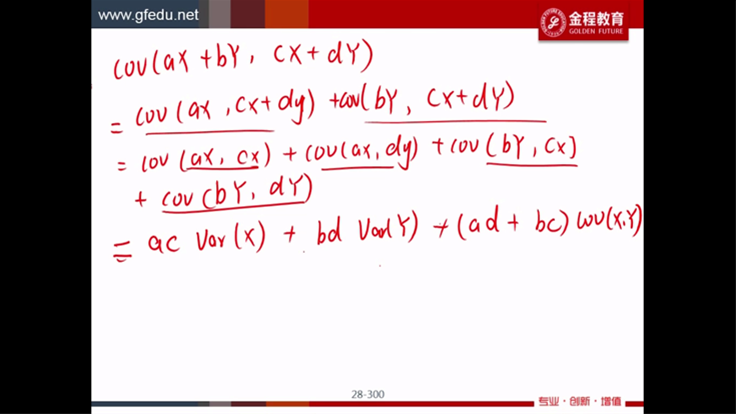 www.gfedu.net
金程教育
GOLDEN FUTURE
cov(ax+bY, cX+dY)
= cov(ax, cx+dy) + cov(bY, cX+dY)
= cov(ax, cx) + cov(ax, dy) + cov(bY, cx)
+ cov(bY, dY)
= ac Var(X) + bd Var(Y) + (ad + bc) cov(X,Y)
28-300
专业·创新·增值